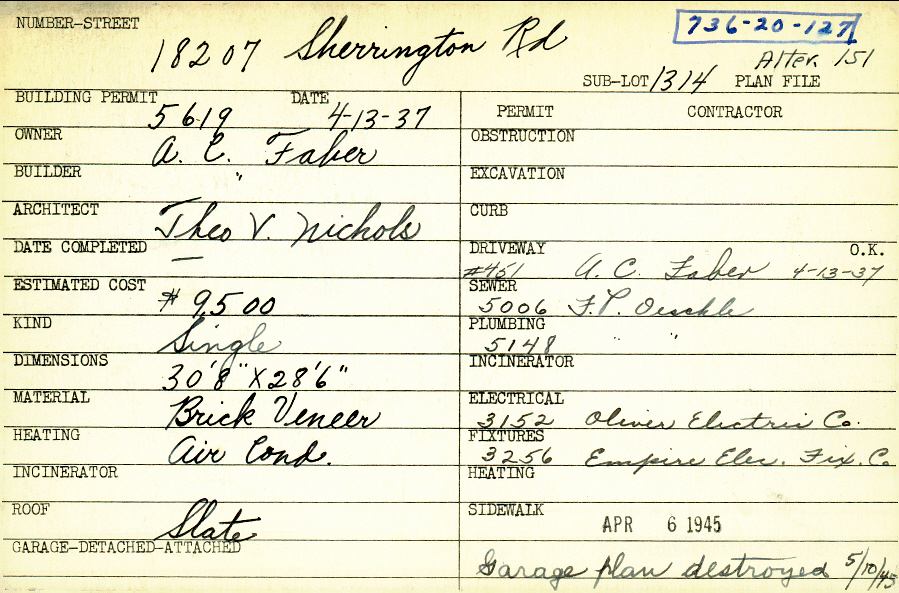 NUMBER-STREET 18207 Sherrington Rd
736-20-127
Alter. 151
SUB-LOT 1314 PLAN FILE
BUILDING PERMIT 5619 DATE 4-13-37
OWNER A. C. Faber
BUILDER "
ARCHITECT Theo V. Nichols
DATE COMPLETED —
ESTIMATED COST # 9500
KIND Single
DIMENSIONS 30'8" X 28'6"
MATERIAL Brick Veneer
HEATING Air Cond.
INCINERATOR
ROOF Slate
GARAGE-DETACHED-ATTACHED
PERMIT CONTRACTOR
OBSTRUCTION
EXCAVATION
CURB
DRIVEWAY O.K.
#451 A. C. Faber 4-13-37
SEWER
5006 F.P. Oeschle
PLUMBING
5148 " "
INCINERATOR
ELECTRICAL
3152 Oliver Electric Co.
FIXTURES
3256 Empire Elec. Fix. Co
HEATING
SIDEWALK
APR 6 1945
Garage plan destroyed 5/10/45